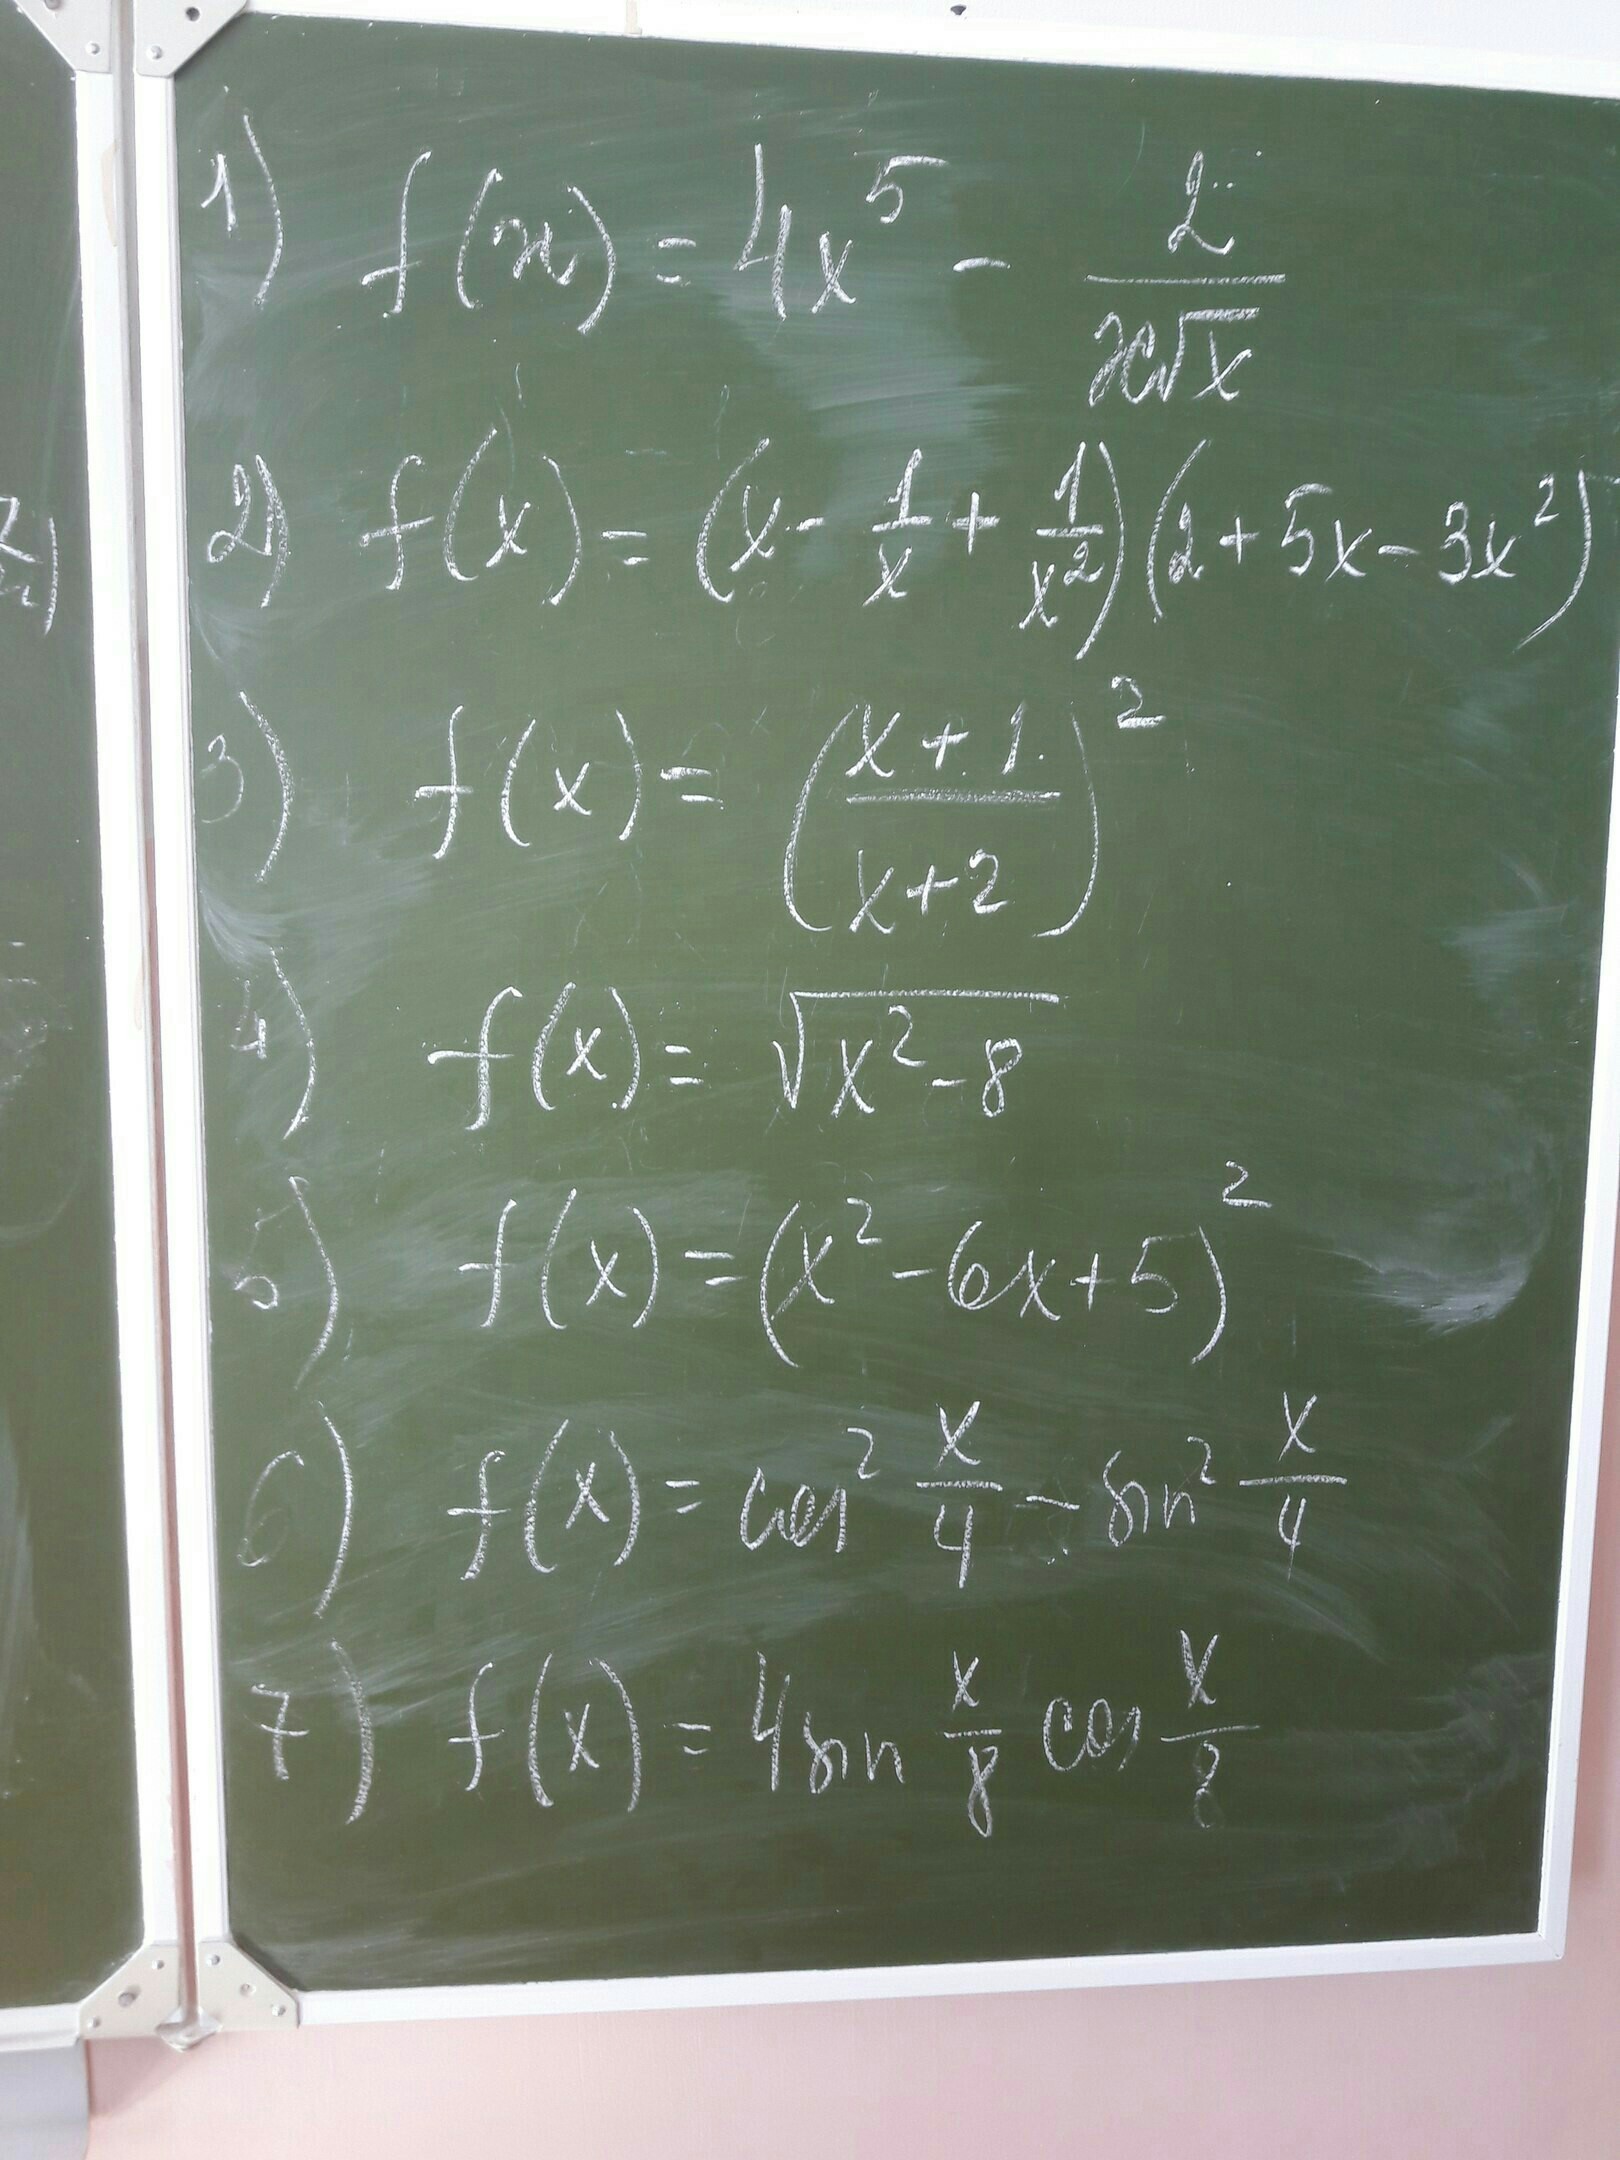 1) f(x) = 4x⁵ - 2/(x√x)
2) f(x) = (x - 1/x + 1/x²)(2 + 5x - 3x²)
3) f(x) = ((x+1)/(x+2))²
4) f(x) = √(x² - 8)
5) f(x) = (x² - 6x + 5)²
6) f(x) = cos² x/4 - sin² x/4
7) f(x) = 4 sin x/8 cos x/8